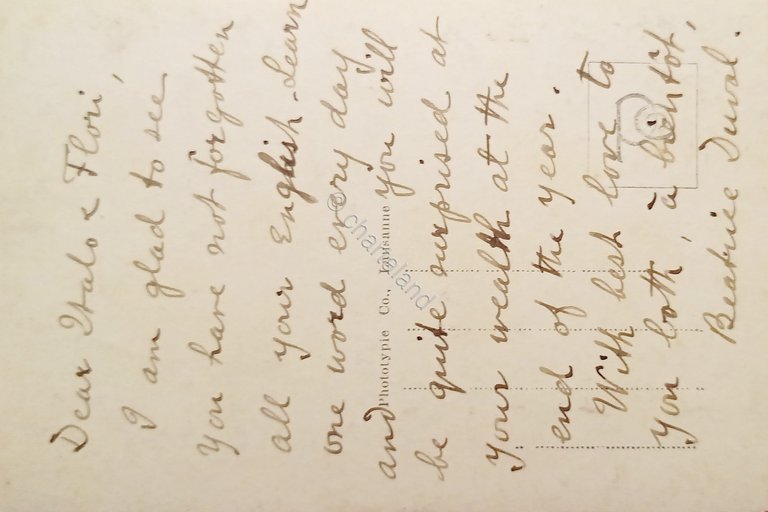 Dear Italo & Flori,
I am glad to see
you have not forgotten
all your English. Learn
one word every day
and you will
be quite surprised at
your wealth at the
end of the year.
With best love to
you both, à bientôt,
Beatrice Duval.
Phototypie Co., Lausanne
© chanaland